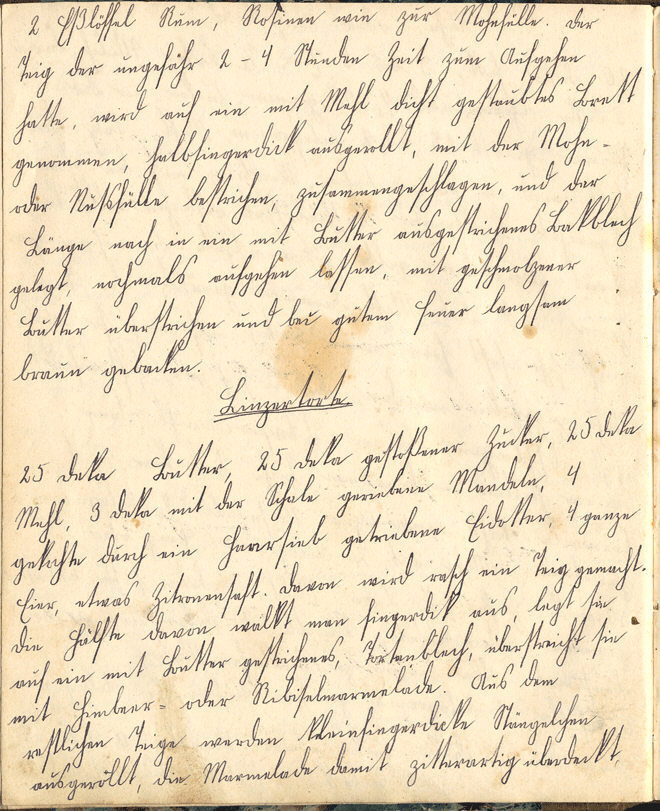 2 Eßlöffel Rum, Rosinen wie zur Mohnfülle. Der
Teig der ungefähr 2 - 4 Stunden Zeit zum Aufgehen
hatte, wird auf ein mit Mehl dicht gestaubtes Brett
genommen, halbfingerdick ausgerollt, mit der Mohn-
oder Nussfülle bestrichen, zusammengeschlagen, und der
Länge nach in ein mit Butter ausgestrichenes Bakblech
gelegt, nochmals aufgehen lassen, mit geschmolzener
Butter überstrichen und bei gutem Feuer langsam
braun gebacken.
Linzertorte.
25 deka Butter, 25 deka gestoßener Zucker, 25 deka
Mehl, 3 deka mit der Schale geriebene Mandeln, 4
gekochte durch ein Haarsieb getriebene Eidotter, 4 ganze
Eier, etwas Zitronensaft. Davon wird rasch ein Teig gemacht.
Die Hälfte davon walkt man fingerdik aus, legt sie
auf ein mit Butter gestrichenes, Tortenblech, überstreicht sie
mit Himbeer- oder Ribiselmarmelade. Aus dem
restlichen Teige werden kleinfingerdicke Stängelchen
ausgerollt, die Marmelade damit zitterartig überdeckt,